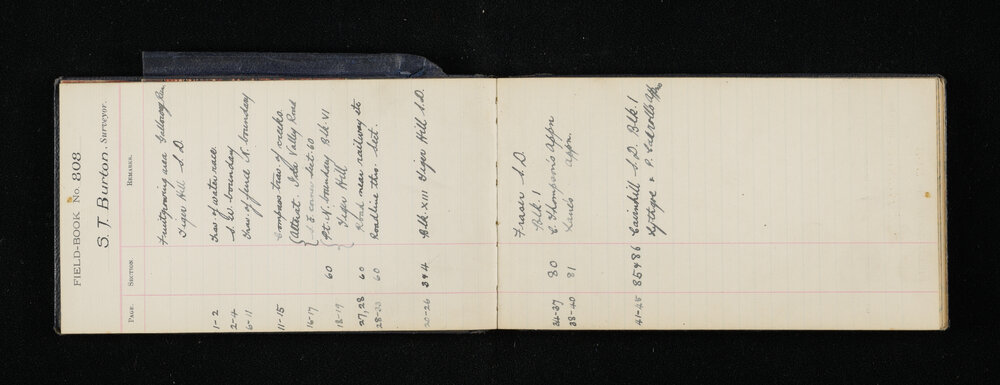 FIELD-BOOK No. 808
S. T. Burton, Surveyor.
PAGE. SECTION REMARKS.
Fruitgrowing area Galloway
Tiger Hill S.D.
1-2 Trav. of water race.
2-4 S.W. boundary
6-11 Trav. of fence N. boundary
11-15 Compass trav. of creeks.
Alterat. Ida Valley Road
16-17 Sect. 60
18-19 60 Pt. N. boundary Blk. VI
Tiger Hill
27, 28 60 Road near railway stn
28-33 60 Roadline thro. Sect.
20-26 3 & 4 Blk XIII Tiger Hill S.D.
Fraser S.D.
Blk. 1
34-37 80 C. Thompson's Appn
38-40 81 Appn.
41-45 85 & 86 Cairnhill S.D. Blk. 1